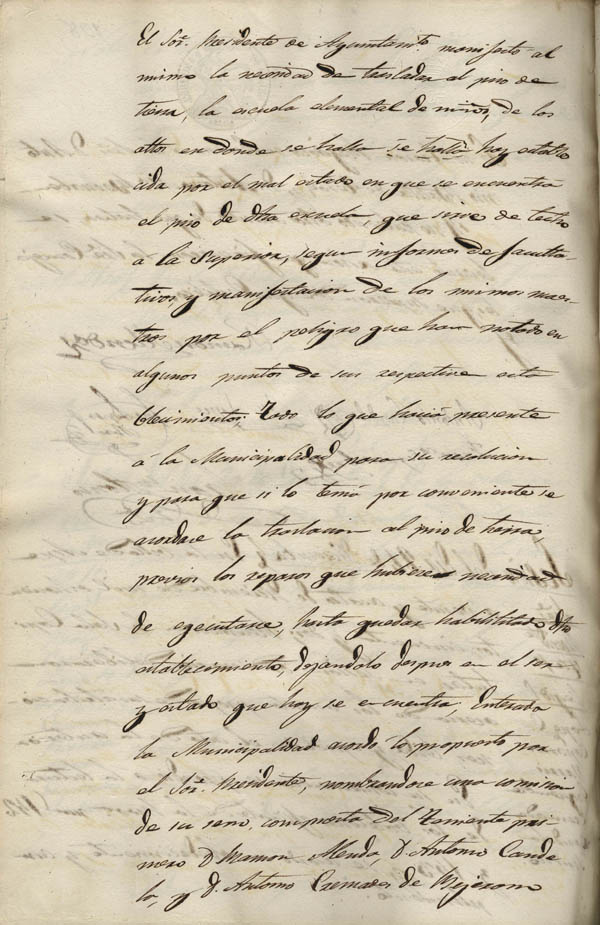 El Sor. Presidente de Ayuntamto. manifesto al
mismo la necesidad de trasladar al piso de
tierra, la escuela elemental de niños, de los
altos en donde se halla se halla hoy estable
cida por el mal estado en que se encuentra
el piso de dha escuela, que sirve de techo
á la Superior, segun informes de faculta-
tivos y manifestacion de los mismos maes-
tros por el peligro que han notado en
algunos puntos de sus respective esta
blecimientos; Todo lo que hacia presente
á la Municipalidad para su resolucion
y para que si lo tenia por conveniente se
acordase la traslacion al piso de tierra,
previos los reparos que hubiese necesidad
de egecutarse, hasta quedar habilitado dho
establecimiento, dejandolo despues en el ser
y estado que hoy se encuentra; Enterada
la Municipalidad acordó lo propuesto por
el Sor. Presidente, nombrandose una comision
de su seno, compuesta del Teniente pri-
mero D. Ramon Alenda D. Antonio Cande
la, y D. Antonio Cremades de